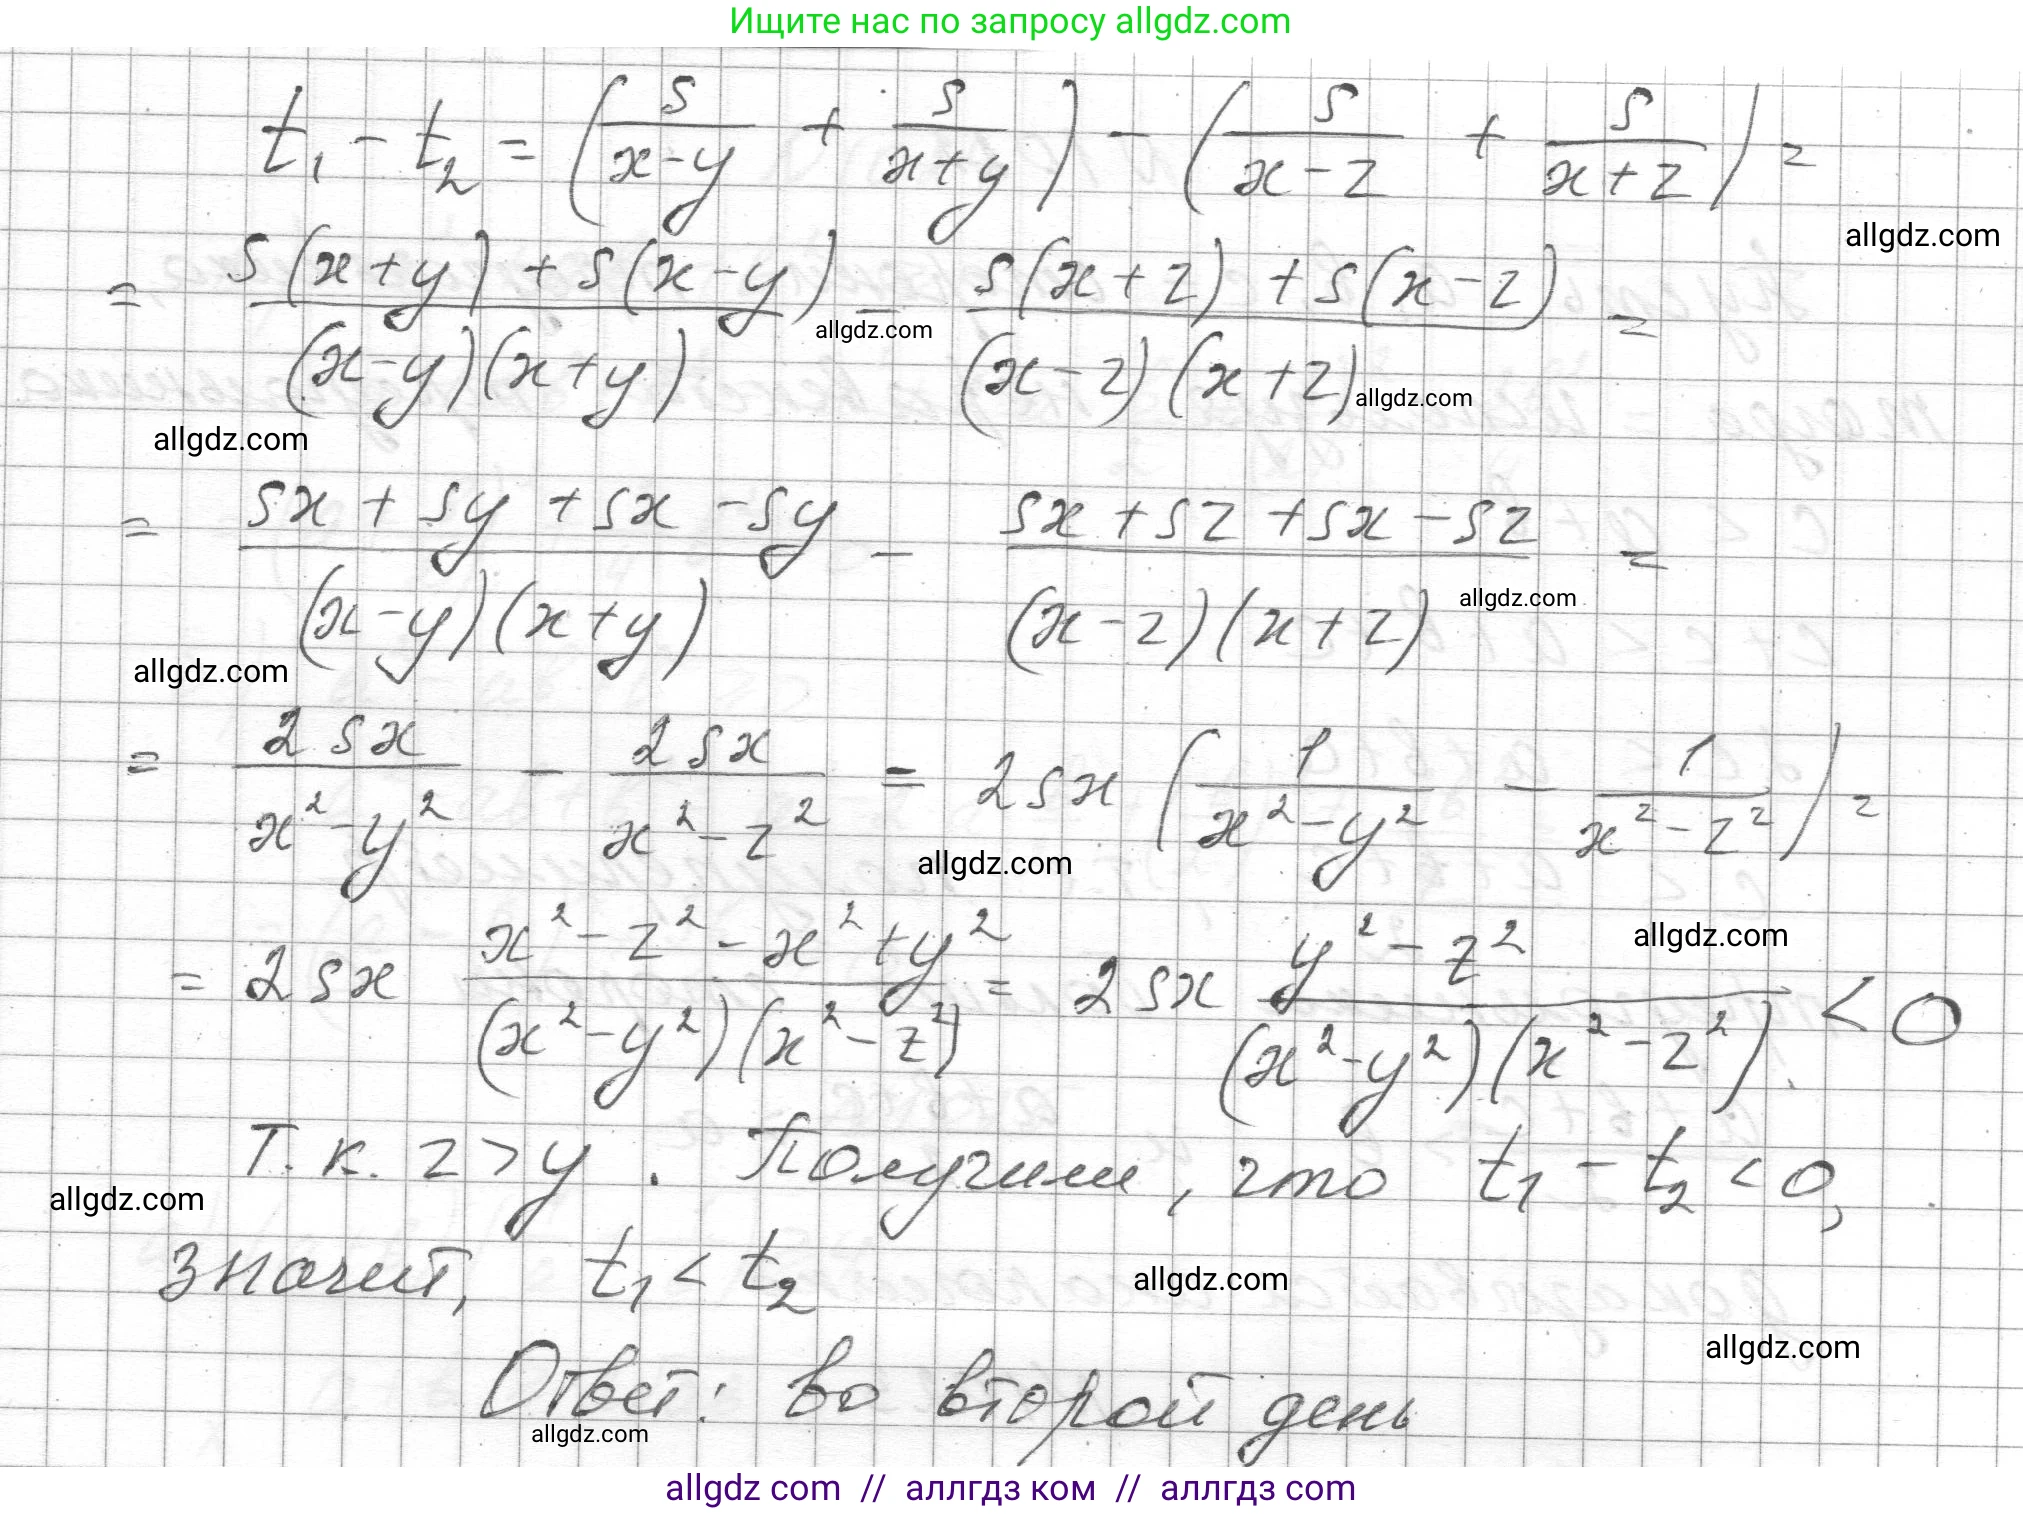 Ищите нас по запросу allgdz.com
t₁ - t₂ = (s/(x-y) + s/(x+y)) - (s/(x-z) + s/(x+z)) =
allgdz.com
= (s(x+y) + s(x-y))/((x-y)(x+y)) - (s(x+z) + s(x-z))/((x-z)(x+z)) =
allgdz.com
allgdz.com
allgdz.com
= (sx + sy + sx - sy)/((x-y)(x+y)) - (sx + sz + sx - sz)/((x-z)(x+z)) =
allgdz.com
allgdz.com
= 2sx/(x²-y²) - 2sx/(x²-z²) = 2sx (1/(x²-y²) - 1/(x²-z²)) =
allgdz.com
allgdz.com
= 2sx (x²-z²-x²+y²)/((x²-y²)(x²-z²)) = 2sx (y²-z²)/((x²-y²)(x²-z²)) < 0
Т.к. z > y. Получим, что t₁ - t₂ < 0,
allgdz.com
значит, t₁ < t₂
allgdz.com
allgdz.com
Ответ: во второй день
allgdz.com
allgdz com // аллгдз ком // аллгдз com